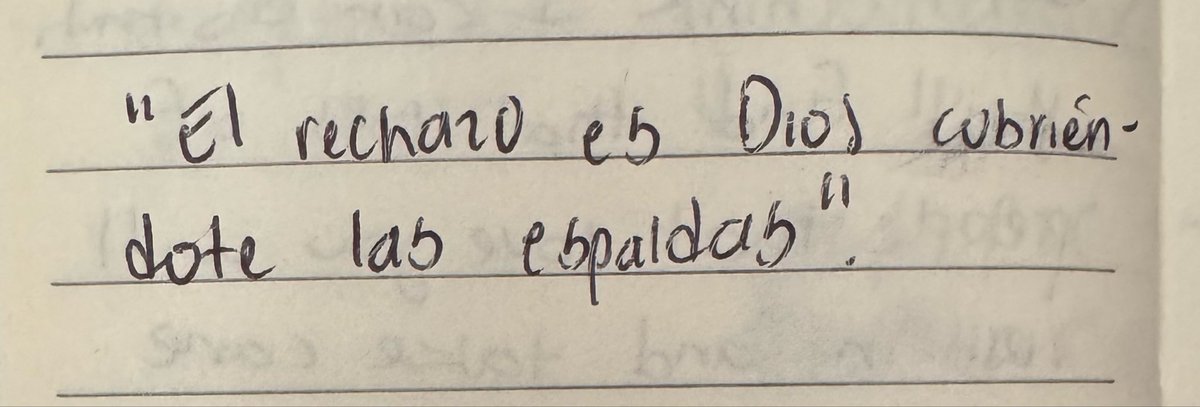 "El rechazo es Dios cubrién-
dote las espaldas".